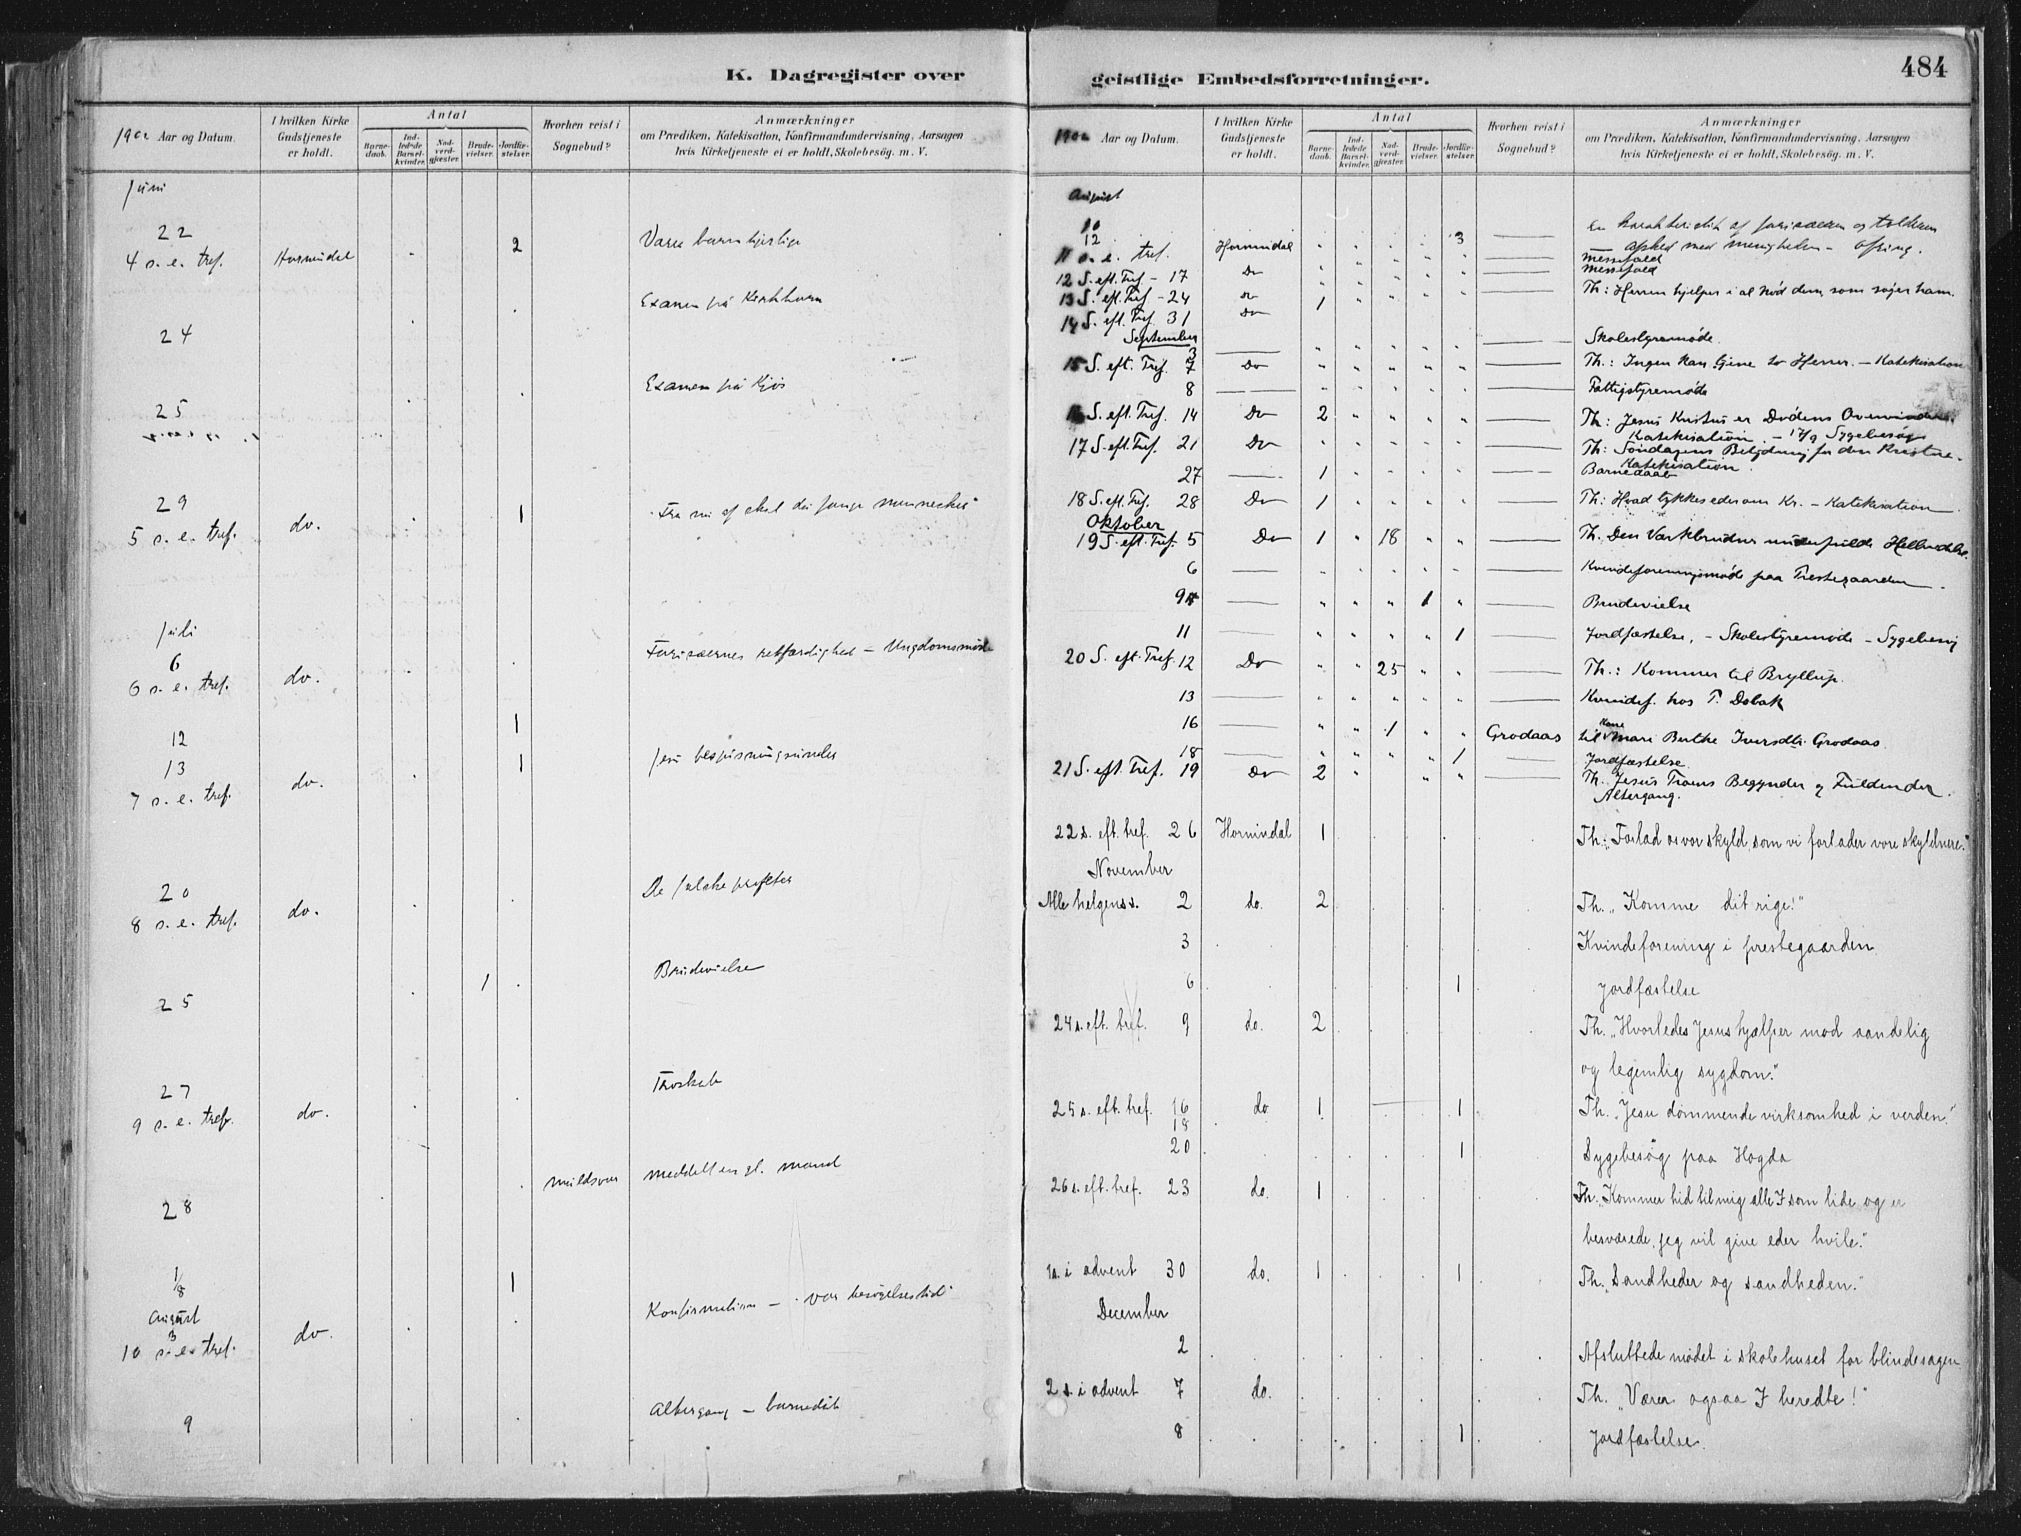 K. Dagregister over
1902 Aar og Datum.
I hvilken Kirke Gudstjeneste er holdt.
Antal
Barne-daab.
Ind-ledede Barsel-kvinder.
Nad-verd-gjester.
Brude-vielser.
Jordfæ-stelser.
Hvorhen reist i Sognebud?
Anmærkninger
om Prædiken, Katekisation, Konfirmandundervisning, Aarsagen
hvis Kirketjeneste ei er holdt, Skolebesög. m. V.
Juni
22
4 s. e. tref. Hornindal 2 Være barmhjertige
24 Examen på Kirkhorn
25 Examen på Kjös
29
5 s. e. tref. do. 1
Juli
6
6 s. e. tref. do. Farisæernes retfærdighed – Ungdomsmöde
12 1
13
7 s. e. tref. do. 1 Jesu bespisningsunder
20
8 s. e. tref. do. De falske profeter
25 1 Brudevielse
27
9 s. e. tref. do. Troskab
28 meddelt en gl. mand
1/8 1
August
3
10 s. e. tref. do. Konfirmation – vor besögelsestid
9 Altergang – barnedåb
geistlige Embedsforretninger.
484
1902 Aar og Datum.
I hvilken Kirke Gudstjeneste er holdt.
Antal
Barne-daab.
Ind-ledede Barsel-kvinder.
Nad-verd-gjester.
Brude-vielser.
Jordfæ-stelser.
Hvorhen reist i Sognebud?
Anmærkninger
om Prædiken, Katekisation, Konfirmandundervisning, Aarsagen
hvis Kirketjeneste ei er holdt, Skolebesög. m. V.
August
10
12 3 En karakteristik af farisæeren og tolderen
11 s. e. tref. Hornindal afsked med menigheden – ofring.
12 S. eft. Tref – 17 Do Messefald
13 S. eft. Tref – 24 do 1 Messefald
14 S. eft. Tref. 31 Do Th: Herren hjelper i al Nød dem, som søger ham.
September
3 Skolestyremøde.
15 S. eft. Tref. 7 Do Th.: Ingen kan tjene to Herrer. – Katekisation
8 Fattigstyremøde
16 S. eft. Tref. 14 Do 2 Th: Jesus Kristus er Dødens Overvinder.
Katekisation. – 17/9 Sygebesøg
17 S. eft Tref. 21 Do Th: Søndagens Betydning for den Kristne.
Katekisation.
27 1 Barnedaab
18 S. eft. Tref. 28 Do 1 Th: Hvad tykkes eder om Kr. – Katekisation
Oktober
19 S. eft. Tref. 5 Do 1 18 Th. Den Værkbrudnes underfulde Helbredelse.
6 Kvindeforeningsmøde paa Prestegaarden.
9 1 Brudevielse
11 1 Jordfæstelse. – Skolestyremøde – Sygebesøg
20 S. eft. Tref. 12 Do 25 Th.: Kommer til Bryllup.
13 Kvindef. hos P. Dobak
16 1 Grodaas til Mari Berthe Iversdtr. Grodaas
18 1 Jordfæstelse.
21 S. eft. Tref. 19 Do 2 Th. Jesus Troens Begynder og Fuldender.
Altergang.
22 s. eft. tref. 26 Hornindal 1 Th: „Forlad os vor skyld, som vi forlader vore skyldnere."
November
Alle helgens s. 2 do. 2 Th. „Komme dit rige!"
3 Kvindeforening i prestegaarden
6 1 Jordfæstelse
24 s. eft. tref. 9 do. 2 Th. „Hvorledes Jesus hjælper mod aandelig
og legemlig sygdom."
25 s. eft. tref. 16 do 1 1 Th. „Jesu dømmende virksomhed i verden."
18
20 1 Sygebesøg paa Hogda
26 s. eft. tref. 23 do. 1 Th. „Kommer hid til mig alle I som lide og er
besværede, jeg vil give eder hvile."
1 s. i advent 30 do. 1 1 Th. „Sandheder og sandheden."
December
2 Afsluttede mødet i skolehuset for blindesagen
2 s. i advent 7 do. Th. „Værer ogsaa I beredte!"
8 1 Jordfæstelse.